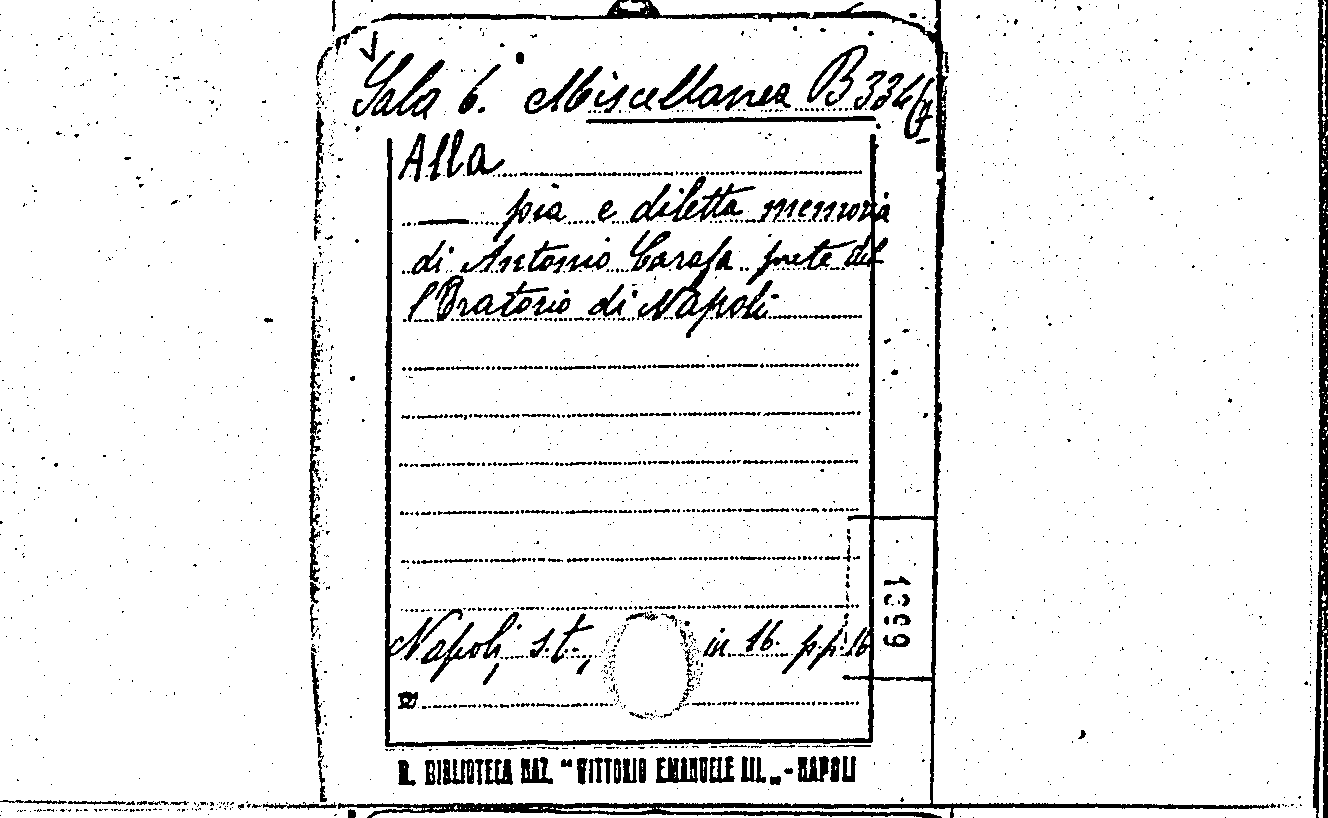 Sala 6. Miscellanea B 334/7
Alla
— pia e diletta memoria
di Antonio Carafa prete del
l'Oratorio di Napoli
Napoli, s.t., in 16. pp. 16
1899
R. BIBLIOTECA NAZ. "VITTORIO EMANUELE III„ - NAPOLI